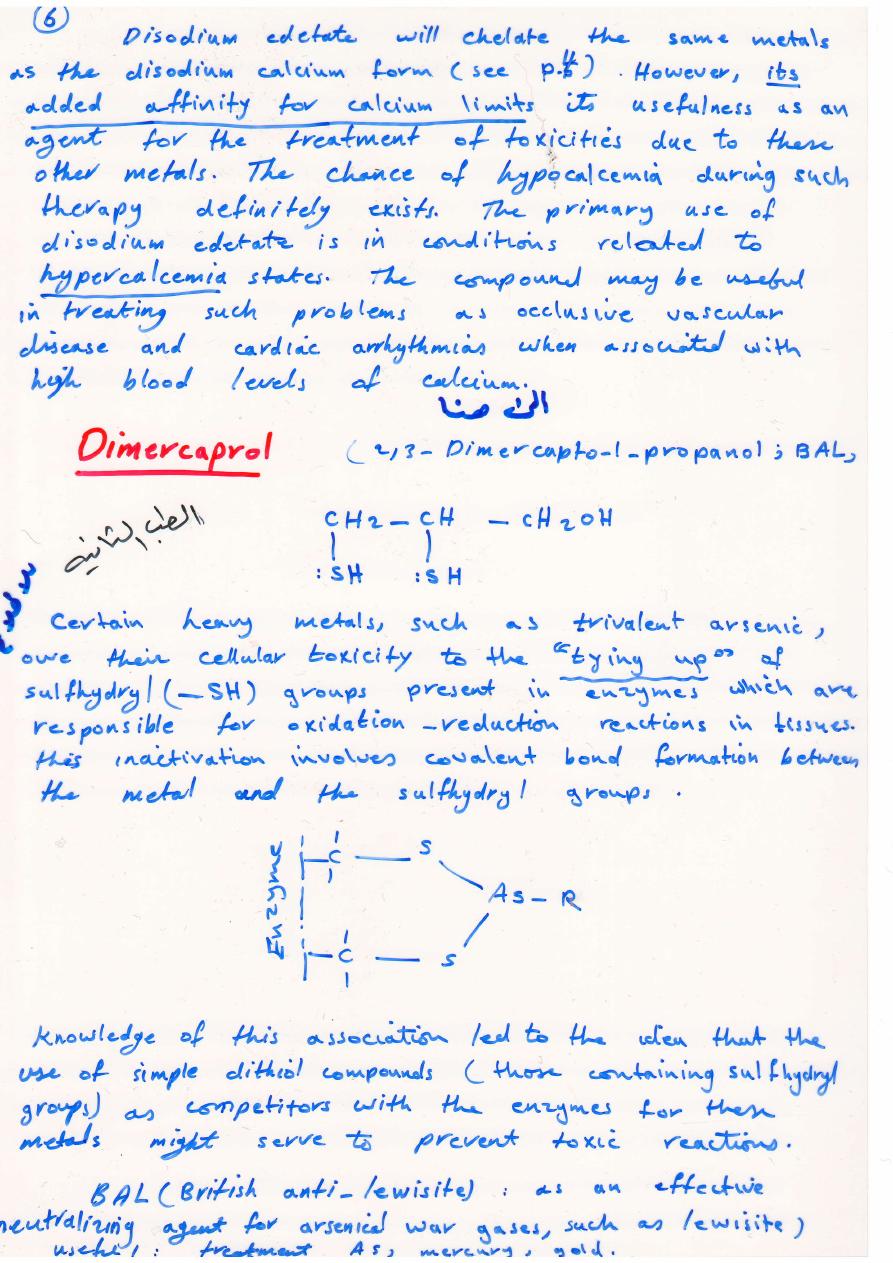 6
Disodium edetate will chelate the same metals
as the disodium calcium form (see p. ). However, its
added affinity for calcium limits its usefulness as an
agent for the treatment of toxicities due to these
other metals. The chance of hypocalcemia during such
therapy definitely exists. The primary use of
disodium edetate is in conditions releated to
hypercalcemia states. The compound may be useful
in treating such problems as occlusive vascular
disease and cardiac arrhythmias when associated with
high blood levels of calcium.
الى هنا
Dimercaprol (2,3-Dimercapto-1-propanol; BAL,
CH2 - CH - CH2OH
الطب الثانيه
:SH :SH
Certain heavy metals, such as trivalent arsenic,
owe their cellular toxicity to the "tying up" of
sulfhydryl (-SH) groups present in enzymes which are
responsible for oxidation-reduction reactions in tissues.
this inactivation involves covalent bond formation between
the metal and the sulfhydryl groups.
Enzyme
C S
As - R
C S
Knowledge of this association led to the idea that the
use of simple dithiol compounds (those containing sulfhydryl
groups) as competitors with the enzymes for these
metals might serve to prevent toxic reactions.
BAL (British anti-lewisite) : as an effective
neutralizing agent for arsenical war gases, such as lewisite)
useful : treatment As, mercury, gold.